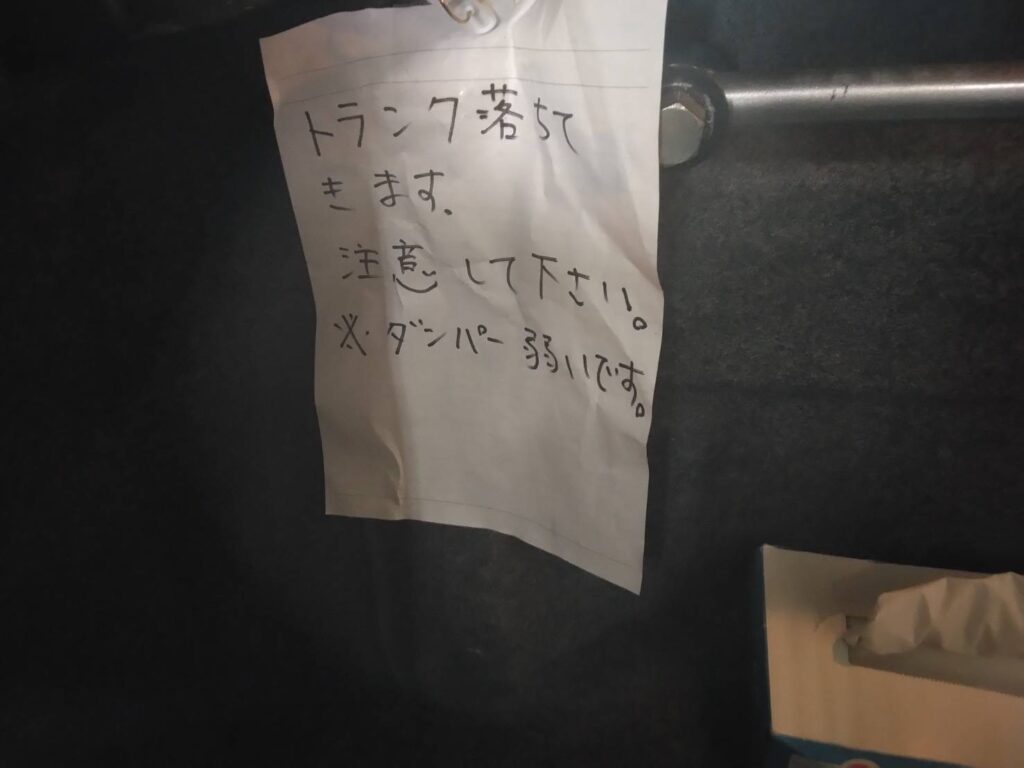 トランク落ちて
きます.
注意して下さい。
※・ダンパー弱いです。